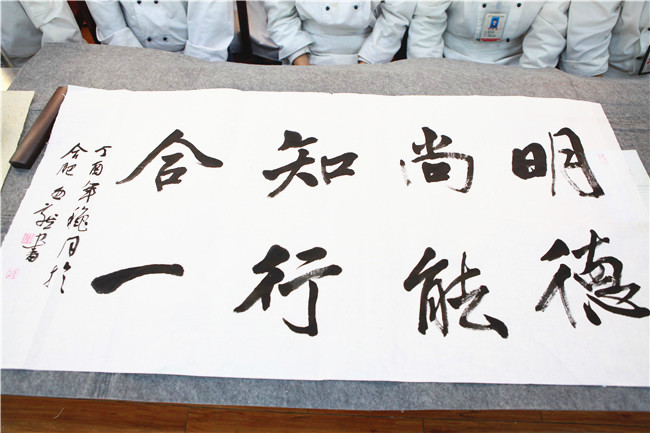 明德
尚能
知行
合一
丁酉年
合肥
書